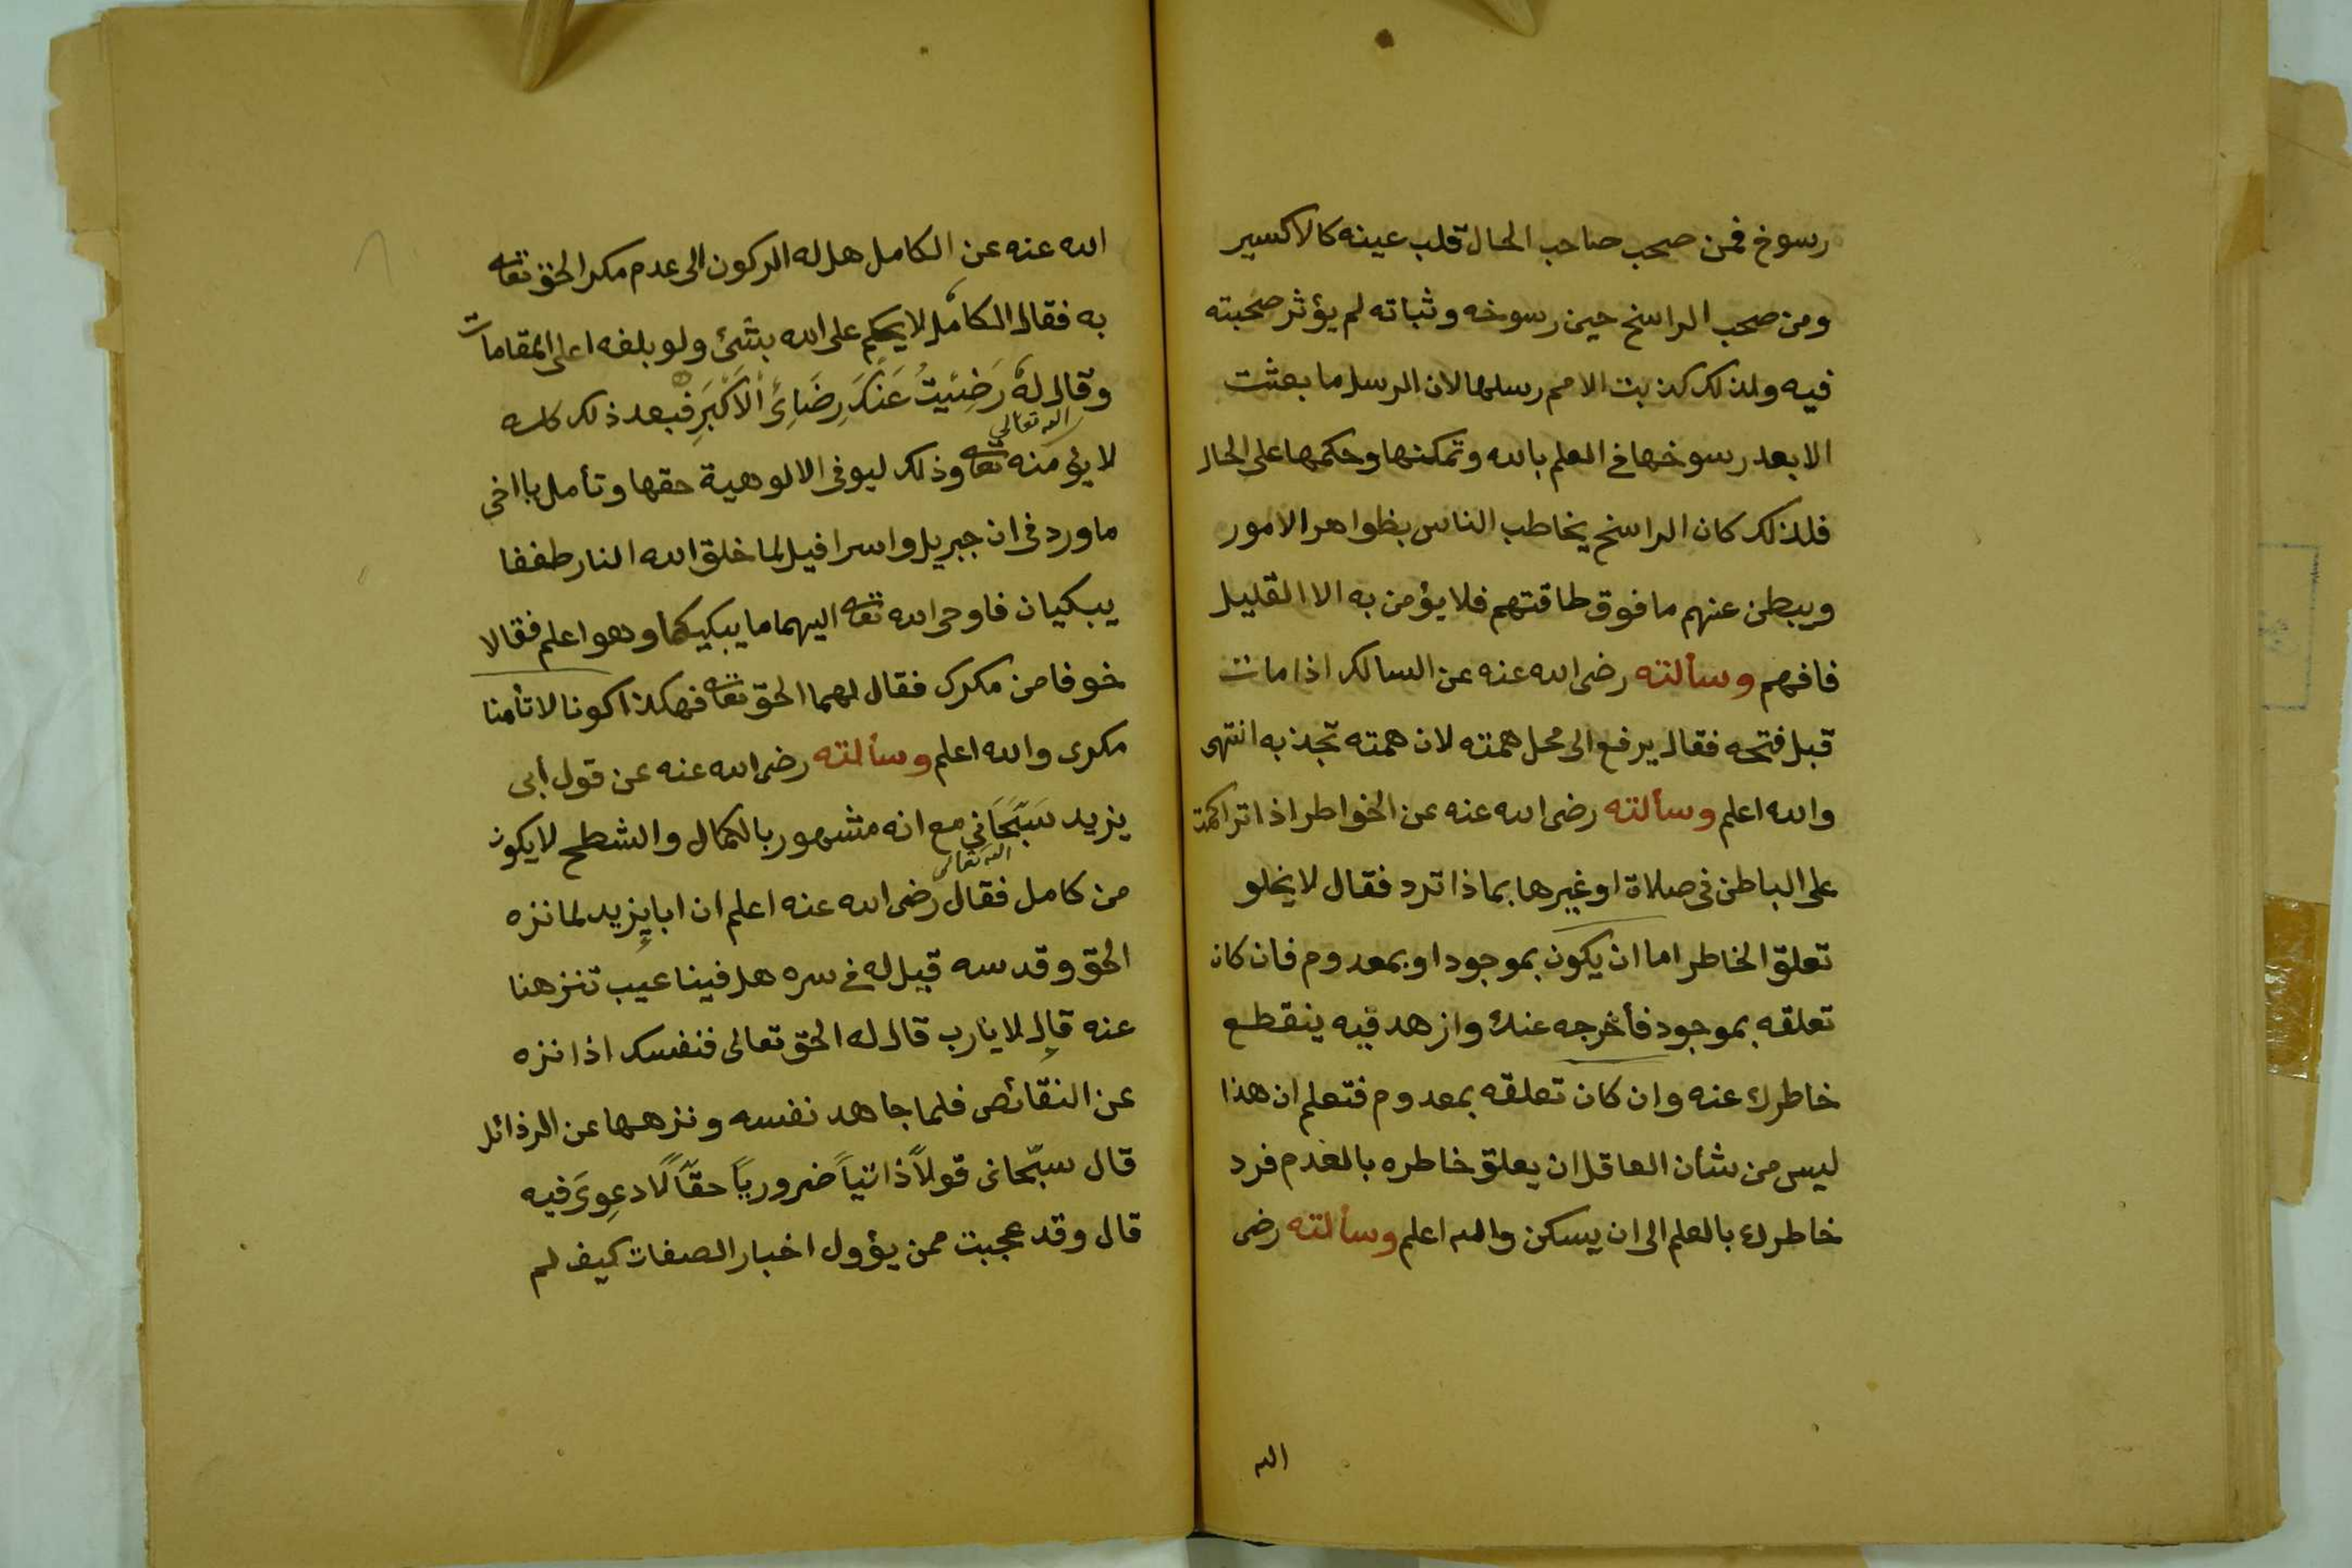 رسوخ فمن صحب صاحب الحال قلب عينه كالاكسير
ومن صحب الراسخ حين رسوخه وثباته لم يؤثر صحبته
فيه ولذلك كذبت الامم رسلها لان الرسل ما بعثت
الا بعد رسوخها في العلم بالله وتمكنها وحكمها على الحال
فلذلك كان الراسخ يخاطب الناس بظواهر الامور
ويبطن عنهم ما فوق طاقتهم فلا يؤمن به الا القليل
فافهم وسألته رضى الله عنه عن السالك اذا مات
قبل فتحه فقال يرفع الى محل همته لان همته تجذبه انتهى
والله اعلم وسألته رضى الله عنه عن الخواطر اذا تراكمت
على الباطن فى صلاة او غيرها بماذا ترد فقال لا يخلو
تعلق الخاطر اما ان يكون بموجود او بمعدوم فان كان
تعلقه بموجود فأخرجه عنك وازهد فيه ينقطع
خاطرك عنه وان كان تعلقه بمعدوم فتعلم ان هذا
ليس من شأن العاقل ان يعلق خاطره بالعدم فرد
خاطرك بالعلم الى ان يسكن والله اعلم وسألته رضى
الله
الله عنه عن الكامل هل له الركون الى عدم مكر الحق تعا
به فقال الكامل لا يحكم على الله بشئ ولو بلغه اعلى المقامات
وقال له رَضِيْتُ عَنْكَ رِضَائِىْ الْاَكْبَرِ فبعد ذلك كله
الله تعالى
لا يؤمنه تعا وذلك ليوفى الالوهية حقها وتأمل يا اخى
ما ورد فى ان جبريل واسرافيل لما خلق الله النار طفقا
يبكيان فاوحى الله تعا اليهما ما يبكيكما وهو اعلم فقالا
خوفا من مكرك فقال لهما الحق تعا فهكذا كونا لا تأمنا
مكرى والله اعلم وسألته رضى الله عنه عن قول أبى
يزيد سَبّحَانى مع انه مشهور بالكمال والشطح لا يكون
الله تعالى
من كامل فقال رضى الله عنه اعلم ان ابا يزيد لما نزه
الحق وقدسه قيل له فى سره هل فينا عيب تنزهنا
عنه قال لا يارب قال له الحق تعالى فنفسك اذا نزه
عن النقائص فلما جاهد نفسه ونزهها عن الرذائل
قال سبّحانى قولاً ذاتياً ضرورياً حقاً لا دعوى فيه
قال وقد عجبت ممن يؤول اخبار الصفات كيف لم